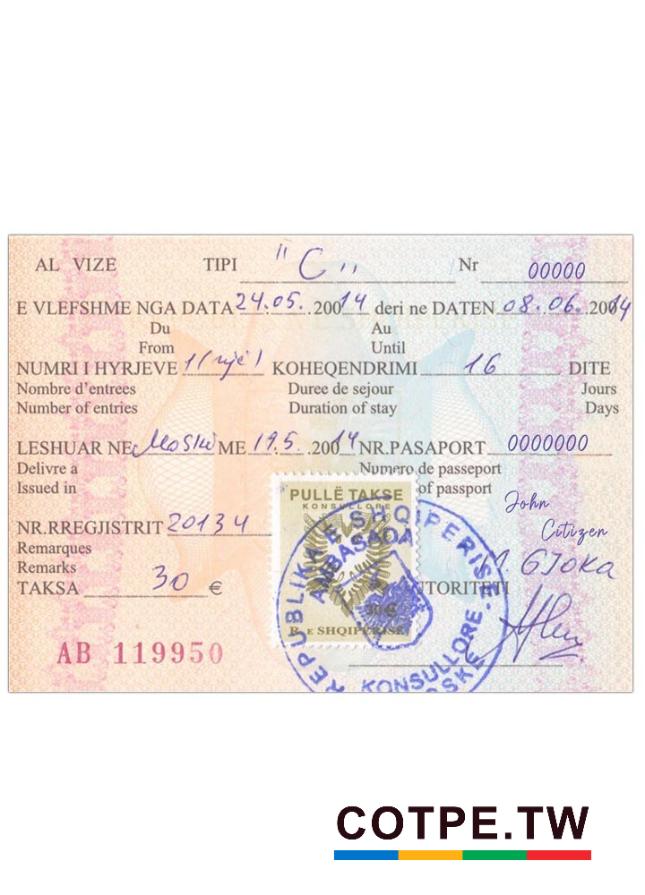 AL VIZE TIPI "C" Nr 00000
E VLEFSHME NGA DATA 24.05. 20014 deri ne DATEN 08.06. 20014
Du Au
From Until
NUMRI I HYRJEVE 1(një) KOHEQENDRIMI 16 DITE
Nombre d'entrees Duree de sejour Jours
Number of entries Duration of stay Days
LESHUAR NE Moskë ME 19.5. 20014 NR.PASAPORT 0000000
Delivre a Numero de passeport
Issued in of passport
John
Citizen
NR.RREGJISTRIT 20134
Remarques
Remarks
TAKSA 30 €
GJOKA
AUTORITETI
AB 119950
PULLË TAKSE
KONSULLORE
R. E SHQIPERISE
REPUBLIKA E SHQIPERISE
AMBASADA
KONSULLORE
COTPE.TW